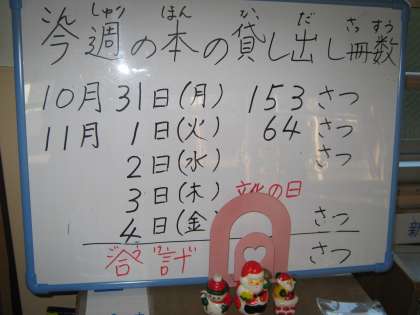 今週の本の貸し出し冊数
こん しゅう ほん か だ さっ すう
10月31日(月) 153さつ
11月 1日(火) 64さつ
2日(水) さつ
3日(木) 文化の日
4日(金) さつ
合計 さつ
新